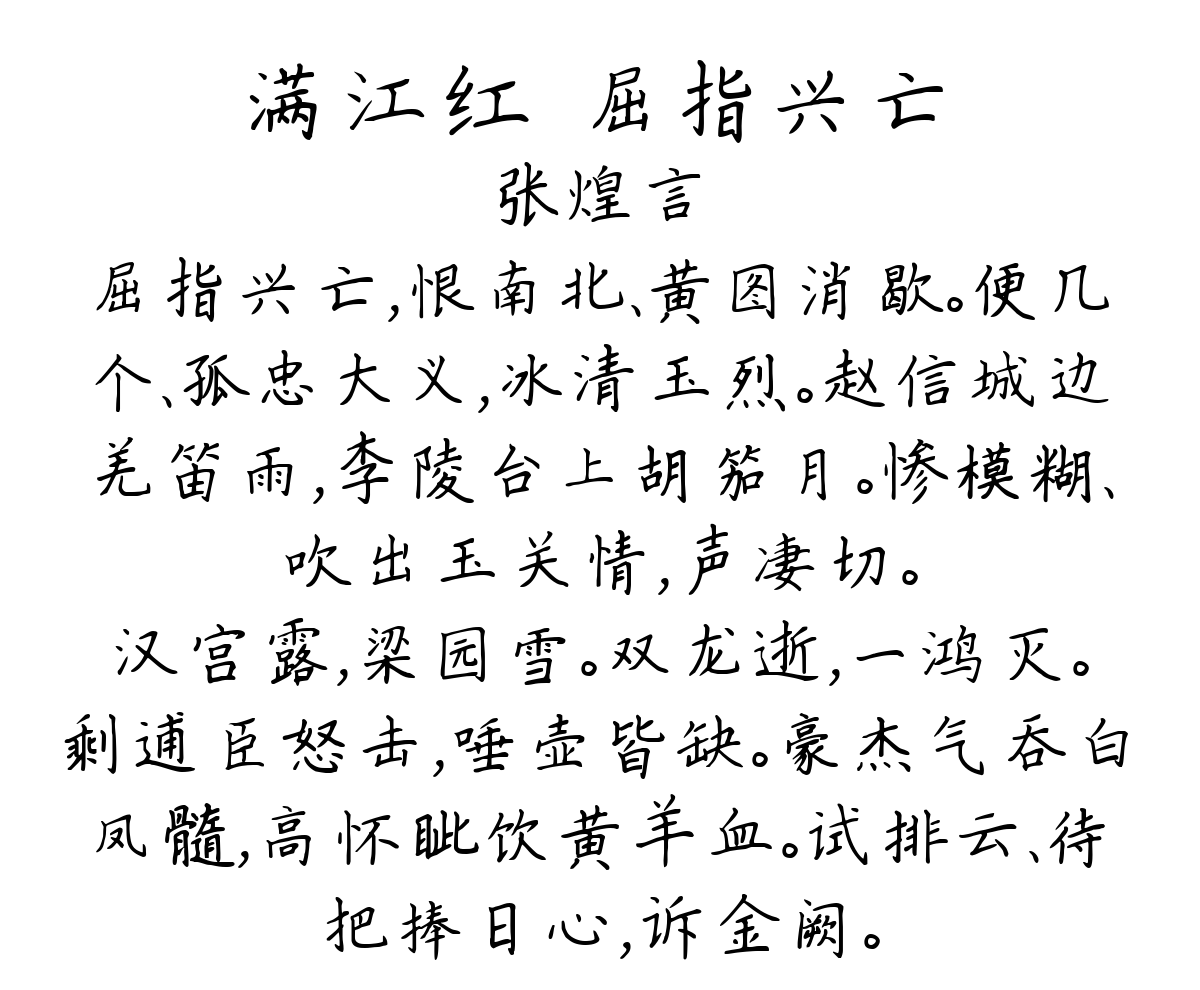 满江红 屈指兴亡
张煌言
屈指兴亡,恨南北、黄图消歇。便几
个、孤忠大义,冰清玉烈。赵信城边
羌笛雨,李陵台上胡笳月。惨模糊、
吹出玉关情,声凄切。
汉宫露,梁园雪。双龙逝,一鸿灭。
剩逋臣怒击,唾壶皆缺。豪杰气吞白
凤髓,高怀眦饮黄羊血。试排云、待
把捧日心,诉金阙。